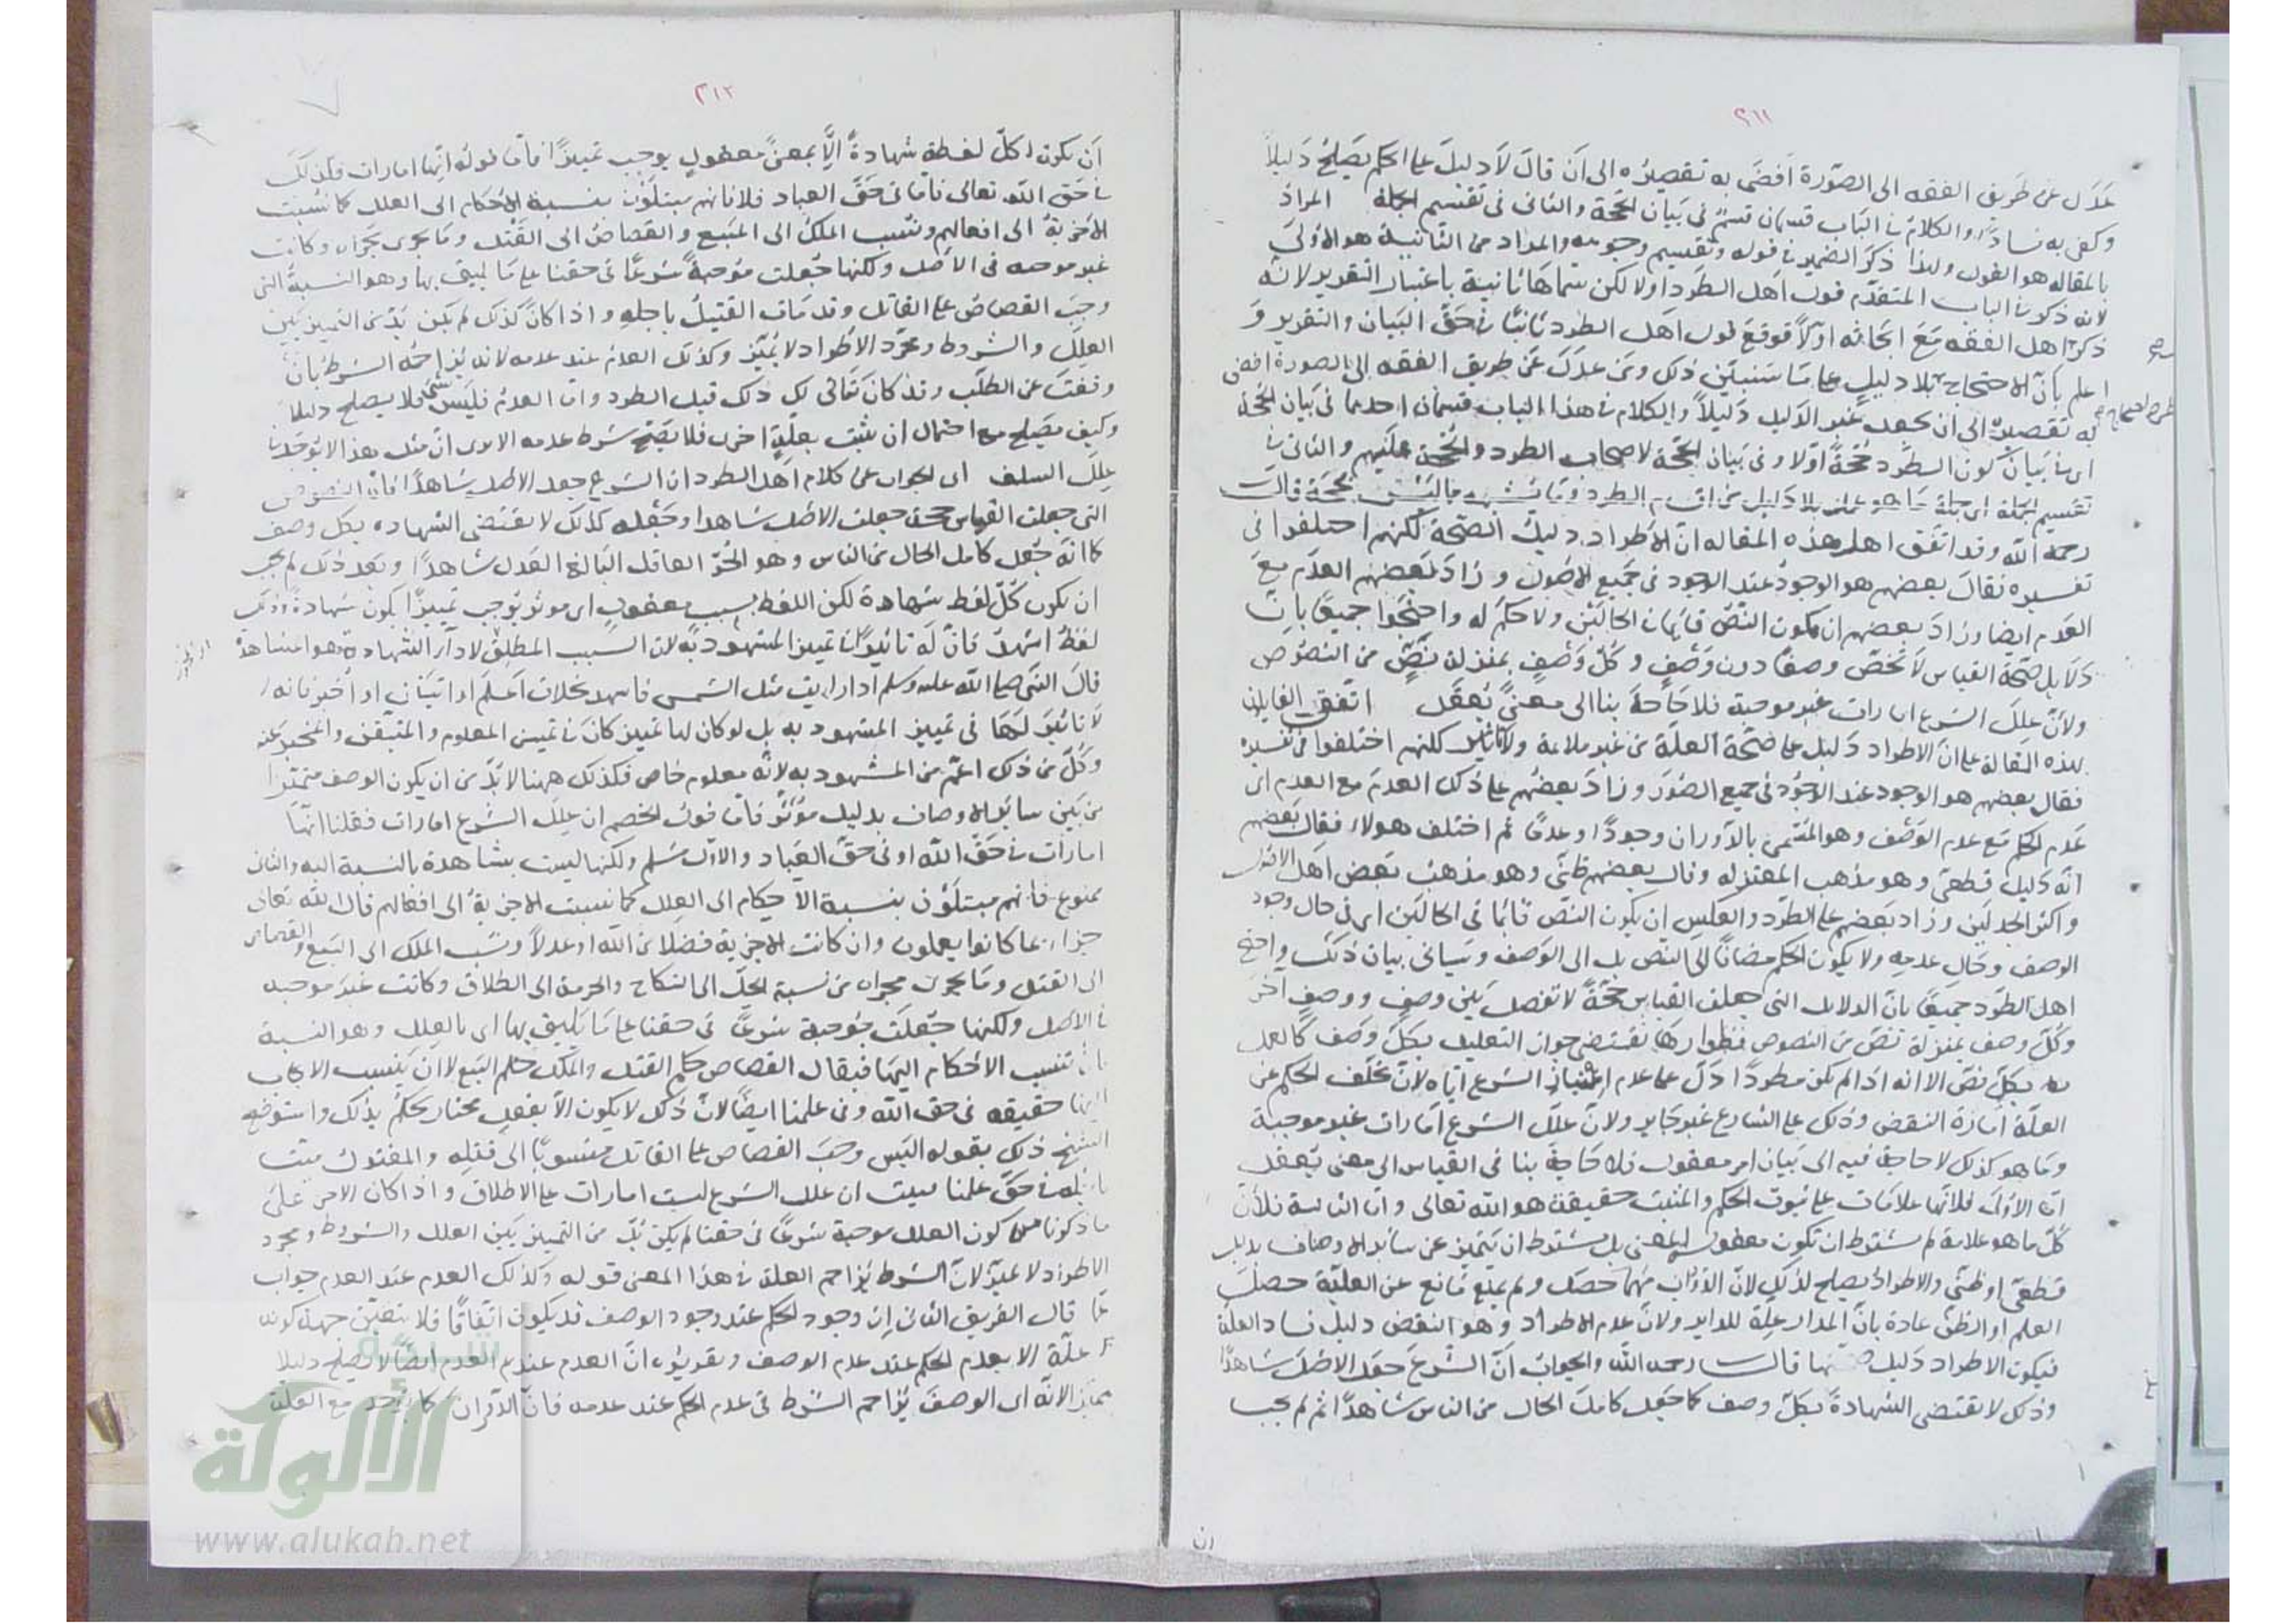 ٢١١
عدل عن طريق الفقه الى الصورة افضى به تقصيره الى ان قال لا دليل على الحكم يصلح دليلاً
وكفى به فسادا والكلام في الباب قسمان قسم في بيان الحجة والثاني في تقسيم الجملة المراد
بالمقالة هو القول ولهذا ذكر الضمير في قوله وتقسيم وجوهه والمراد من الثانية هو الاولى
لانه ذكر في الباب المتقدم قول اهل الطرد اولا لكن سماها ثانية باعتبار التقرير لانه
ذكر اهل الفقه مع ابحاثه اولاً فوقع قول اهل الطرد ثانيا في حق البيان والتقرير و
اعلم بان الاحتجاج بلا دليل على ما سنبين ذلك ومن عدل عن طريق الفقه الى الصورة افضى
به تقصيره الى ان يجعل غير الدليل دليلاً والكلام في هذا الباب قسمان احدهما في بيان الحجة
اى في بيان كون الطرد حجة اولا وفى بيان الحجة لاصحاب الطرد والحجة عليهم والثاني في
تقسيم الجملة اى جملة ما هو عمل بلا دليل من اقسام الطرد وما يشبهه مما ليس بحجة قال
رحمه الله وقد اتفق اهل هذه المقاله ان الاطراد دليل الصحة لكنهم اختلفوا فى
تفسيره فقال بعضهم هو الوجود عند الوجود فى جميع الاصول وزاد بعضهم العدم مع
العدم ايضا وزاد بعضهم ان يكون النص قائما في الحالتين ولا حكم له واحتجوا جميعا بان
دلايل صحة القياس لا تخص وصفا دون وصف وكل وصف بمنزلة نص من النصوص
ولان علل الشرع امارات غير موجبة فلا حاجة بنا الى معنى يعقل اتفق القايلون
بهذه المقالة على ان الاطراد دليل على صحة العلة من غير ملايمة ولا تاثير لكنهم اختلفوا في تفسيره
فقال بعضهم هو الوجود عند الوجود في جميع الصور وزاد بعضهم على ذلك العدم مع العدم اى
عدم الحكم مع عدم الوصف وهو المسمى بالدوران وجودا وعدما ثم اختلف هولاء فقال بعضهم
انه دليل قطعى وهو مذهب المعتزله وقال بعضهم ظني وهو مذهب بعض اهل الاصول
واكثر الجدليين وزاد بعضهم على الطرد والعكس ان يكون النص قائما فى الحالين اى في حال وجود
الوصف وحال عدمه ولا يكون الحكم مضافا الى النص بل الى الوصف وسياتى بيان ذلك واحتج
اهل الطرد جميعا بان الدلايل التى جعلت القياس حجة لا تفصل بين وصف ووصف اخر
وكل وصف بمنزلة نص من النصوص فظواهرها تقتضى جواز التعليل بكل وصف كالعمل
بكل نص الا انه اذا لم يكن مطردا دل على عدم اعتبار الشرع اياه لان تخلف الحكم عن
العلة امارة النقض وذلك على الشارع غير جايز ولان علل الشرع امارات غير موجبة
وما هو كذلك لا حاجة فيه الى بيان امر معقول فلا حاجة بنا فى القياس الى معنى يعقل
اما الاولى فلانها علامات على ثبوت الحكم والمثبت حقيقة هو الله تعالى واما الثانية فلأن
كل ما هو علامة لم يشترط ان يكون معقول المعنى بل يشترط ان يتميز عن سائر الاوصاف بدليل
قطعى او ظنى والاطراد يصلح لذلك لان الدوران مهما حصل ولم يمنع مانع عن العلية حصل
العلم او الظن عادة بان المدار علة للداير ولان عدم الاطراد وهو النقض دليل فساد العلة
فيكون الاطراد دليل صحتها قال رحمه الله والجواب ان الشرع جعل الاصل شاهدا
وذلك لا يقتضى الشهادة بكل وصف كما جعل كامل الحال من الناس شاهدا ثم لم يجب
ان
٢١٢
ان يكون كل لفظة شهادة الا بمعنى معقول يوجب تمييزا فاما قوله انها امارات فكذلك
في حق الله تعالى فاما فى حق العباد فلا فانهم مبتلون بنسبة الاحكام الى العلل كما نسبت
الاجزية الى افعالهم ونسب الملك الى البيع والقصاص الى القتل وما يجرى مجراه وكانت
غير موجبه فى الاصل ولكنها جعلت موجبة شرعا فى حقنا على ما يليق بها وهو النسبة التى
وجب القصاص على القاتل وقد مات القتيل باجله واذا كان كذلك لم يكن بد من التمييز بين
العلل والشروط ومجرد الاطراد لا يميز وكذلك العدم عند عدمه لانه يزاحمه الشرط فان
وقعت عن الطلب وقد كان يتأتى لك ذلك قبل الطرد واما العدم فليس بشئ فلا يصلح دليلا
وكيف يصلح مع احتمال ان يثبت بعلة اخرى فلا يصح شرط عدمه الا يرى ان مثل هذا لا يوجد في
علل السلف اى الجواب عن كلام اهل الطرد ان الشرع جعل الاصل شاهدا فان النصوص
التى جعلت القياس حجة جعلت الاصل شاهدا وجعله كذلك لا يقتضى الشهاده بكل وصف
كما انه جعل كامل الحال من الناس وهو الحر العاقل البالغ العدل شاهدا وبعد ذلك لم يجب
ان يكون كل لفظ شهادة لكن اللفظ بسبب معقول اى موثر يوجب تمييزا يكون شهادة وذلك
لفظ اشهد فان له تاثيرا في تمييز المشهود به لان السبب المطلق لاداء الشهادة هو المشاهدة
قال النبي صلى الله عليه وسلم اذا رايت مثل الشمس فاشهد بخلاف اعلم او اتيقن او اخبر فانه
لا تاثير لها فى تمييز المشهود به بل لو كان لها تمييز كان في تمييز المعلوم والمتيقن والمخبر عنه
وكل من ذلك اعم من المشهود به لانه معلوم خاص فكذلك ههنا لا بد من ان يكون الوصف متميزا
من بين سائر الاوصاف بدليل مؤثر فاما قول الخصم ان علل الشرع امارات فقلنا انها
امارات في حق الله او فى حق العباد والاول مسلم ولكنها ليست بشاهدة بالنسبة اليه والثانى
ممنوع فانهم مبتلون بنسبة الاحكام الى العلل كما نسبت الاجزية الى افعالهم قال الله تعالى
جزاء بما كانوا يعملون وان كانت الاجزية فضلا من الله او عدلا ونسب الملك الى البيع والقصاص
الى القتل وما يجرى مجراه من نسبة الحل الى النكاح والحرمة الى الطلاق وكانت غير موجبه
في الاصل ولكنها جعلت موجبة شرعا فى حقنا على ما يليق بها اى بالعلل وهو النسبة
بان تنسب الاحكام اليها فيقال القصاص حكم القتل والملك حكم البيع لا ان ينسب الايجاب
اليها حقيقه فى حق الله وفى علمنا ايضا لان ذلك لا يكون الا بفعل مختار يحكم بذلك واستوضح
الشيخ ذلك بقوله اليس وجب القصاص على القاتل منسوبا الى قتله والمقتول ميت
باجله في حق علمنا فليست ان علل الشرع ليست امارات على الاطلاق واذا كان الامر على
ما ذكرنا من كون العلل موجبة شرعا فى حقنا لم يكن بد من التمييز بين العلل والشروط ومجرد
الاطراد لا يميز لان الشرط يزاحم العلة في هذا المعنى قوله وكذلك العدم عند العدم جواب
عما قال الفريق الثانى ان وجود الحكم عند وجود الوصف قد يكون اتفاقا فلا يتعين جهة كونه
علة الا بعدم الحكم عند عدم الوصف وتقريره ان العدم عند العدم ايضا لا يصلح دليلا
مميزا لانه اى الوصف يزاحم الشرط فى عدم الحكم عند عدمه فان الدوران كما يوجد مع العلة
الألوكة
www.alukah.net